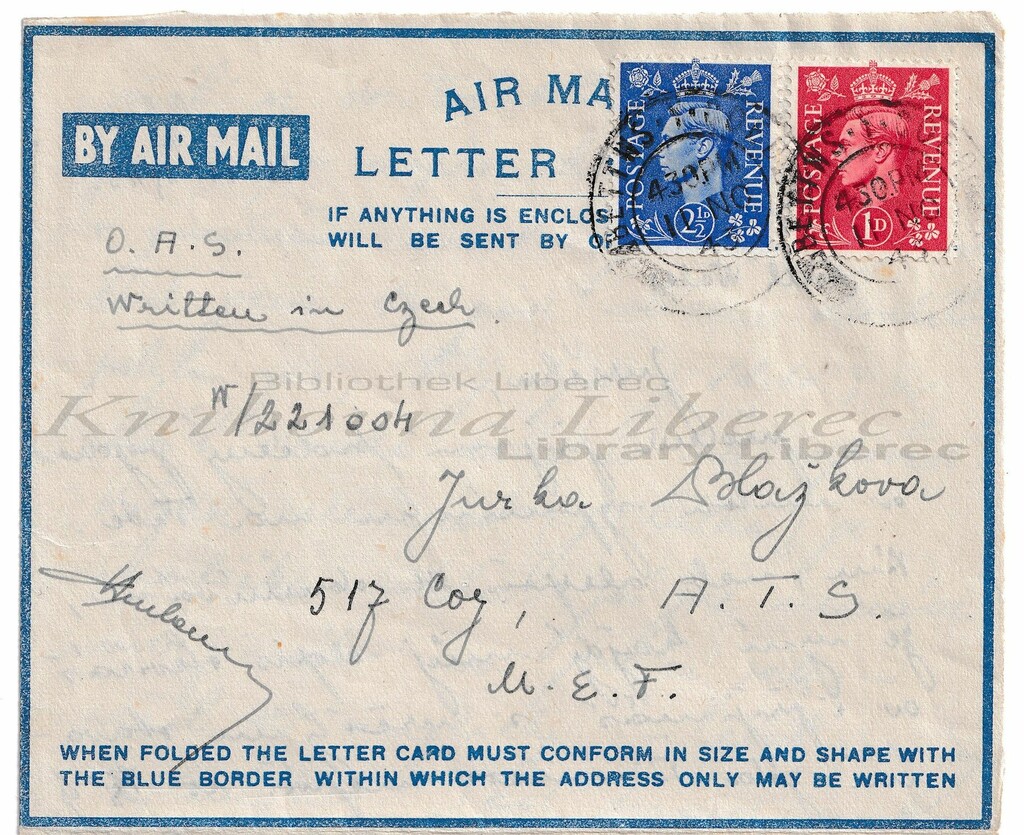 AIR MA
BY AIR MAIL
LETTER
IF ANYTHING IS ENCLOS
WILL BE SENT BY O
POSTAGE REVENUE
2½D
POSTAGE REVENUE
1D
430PM
11 NO
43
430PM
NO
O. A. S.
Written in Czech
W/221004
Bibliothek Liberec
Knihovna Liberec
Library Liberec
Jurka Blažkova
517 Coy, A. T. S.
M. E. F.
WHEN FOLDED THE LETTER CARD MUST CONFORM IN SIZE AND SHAPE WITH
THE BLUE BORDER WITHIN WHICH THE ADDRESS ONLY MAY BE WRITTEN